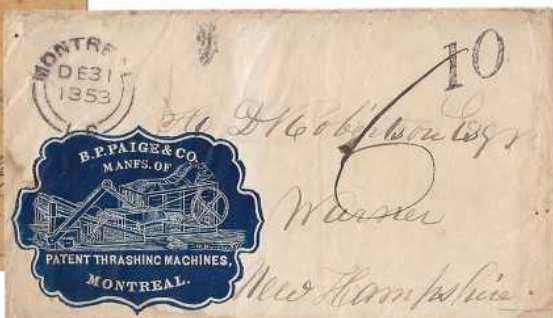 MONTRE
DE 31
1853
10
6
D Robertson Esqr
Warner
New Hampshire.
B.P. PAIGE & CO.
MANFS. OF
PATENT THRASHING MACHINES,
MONTREAL.